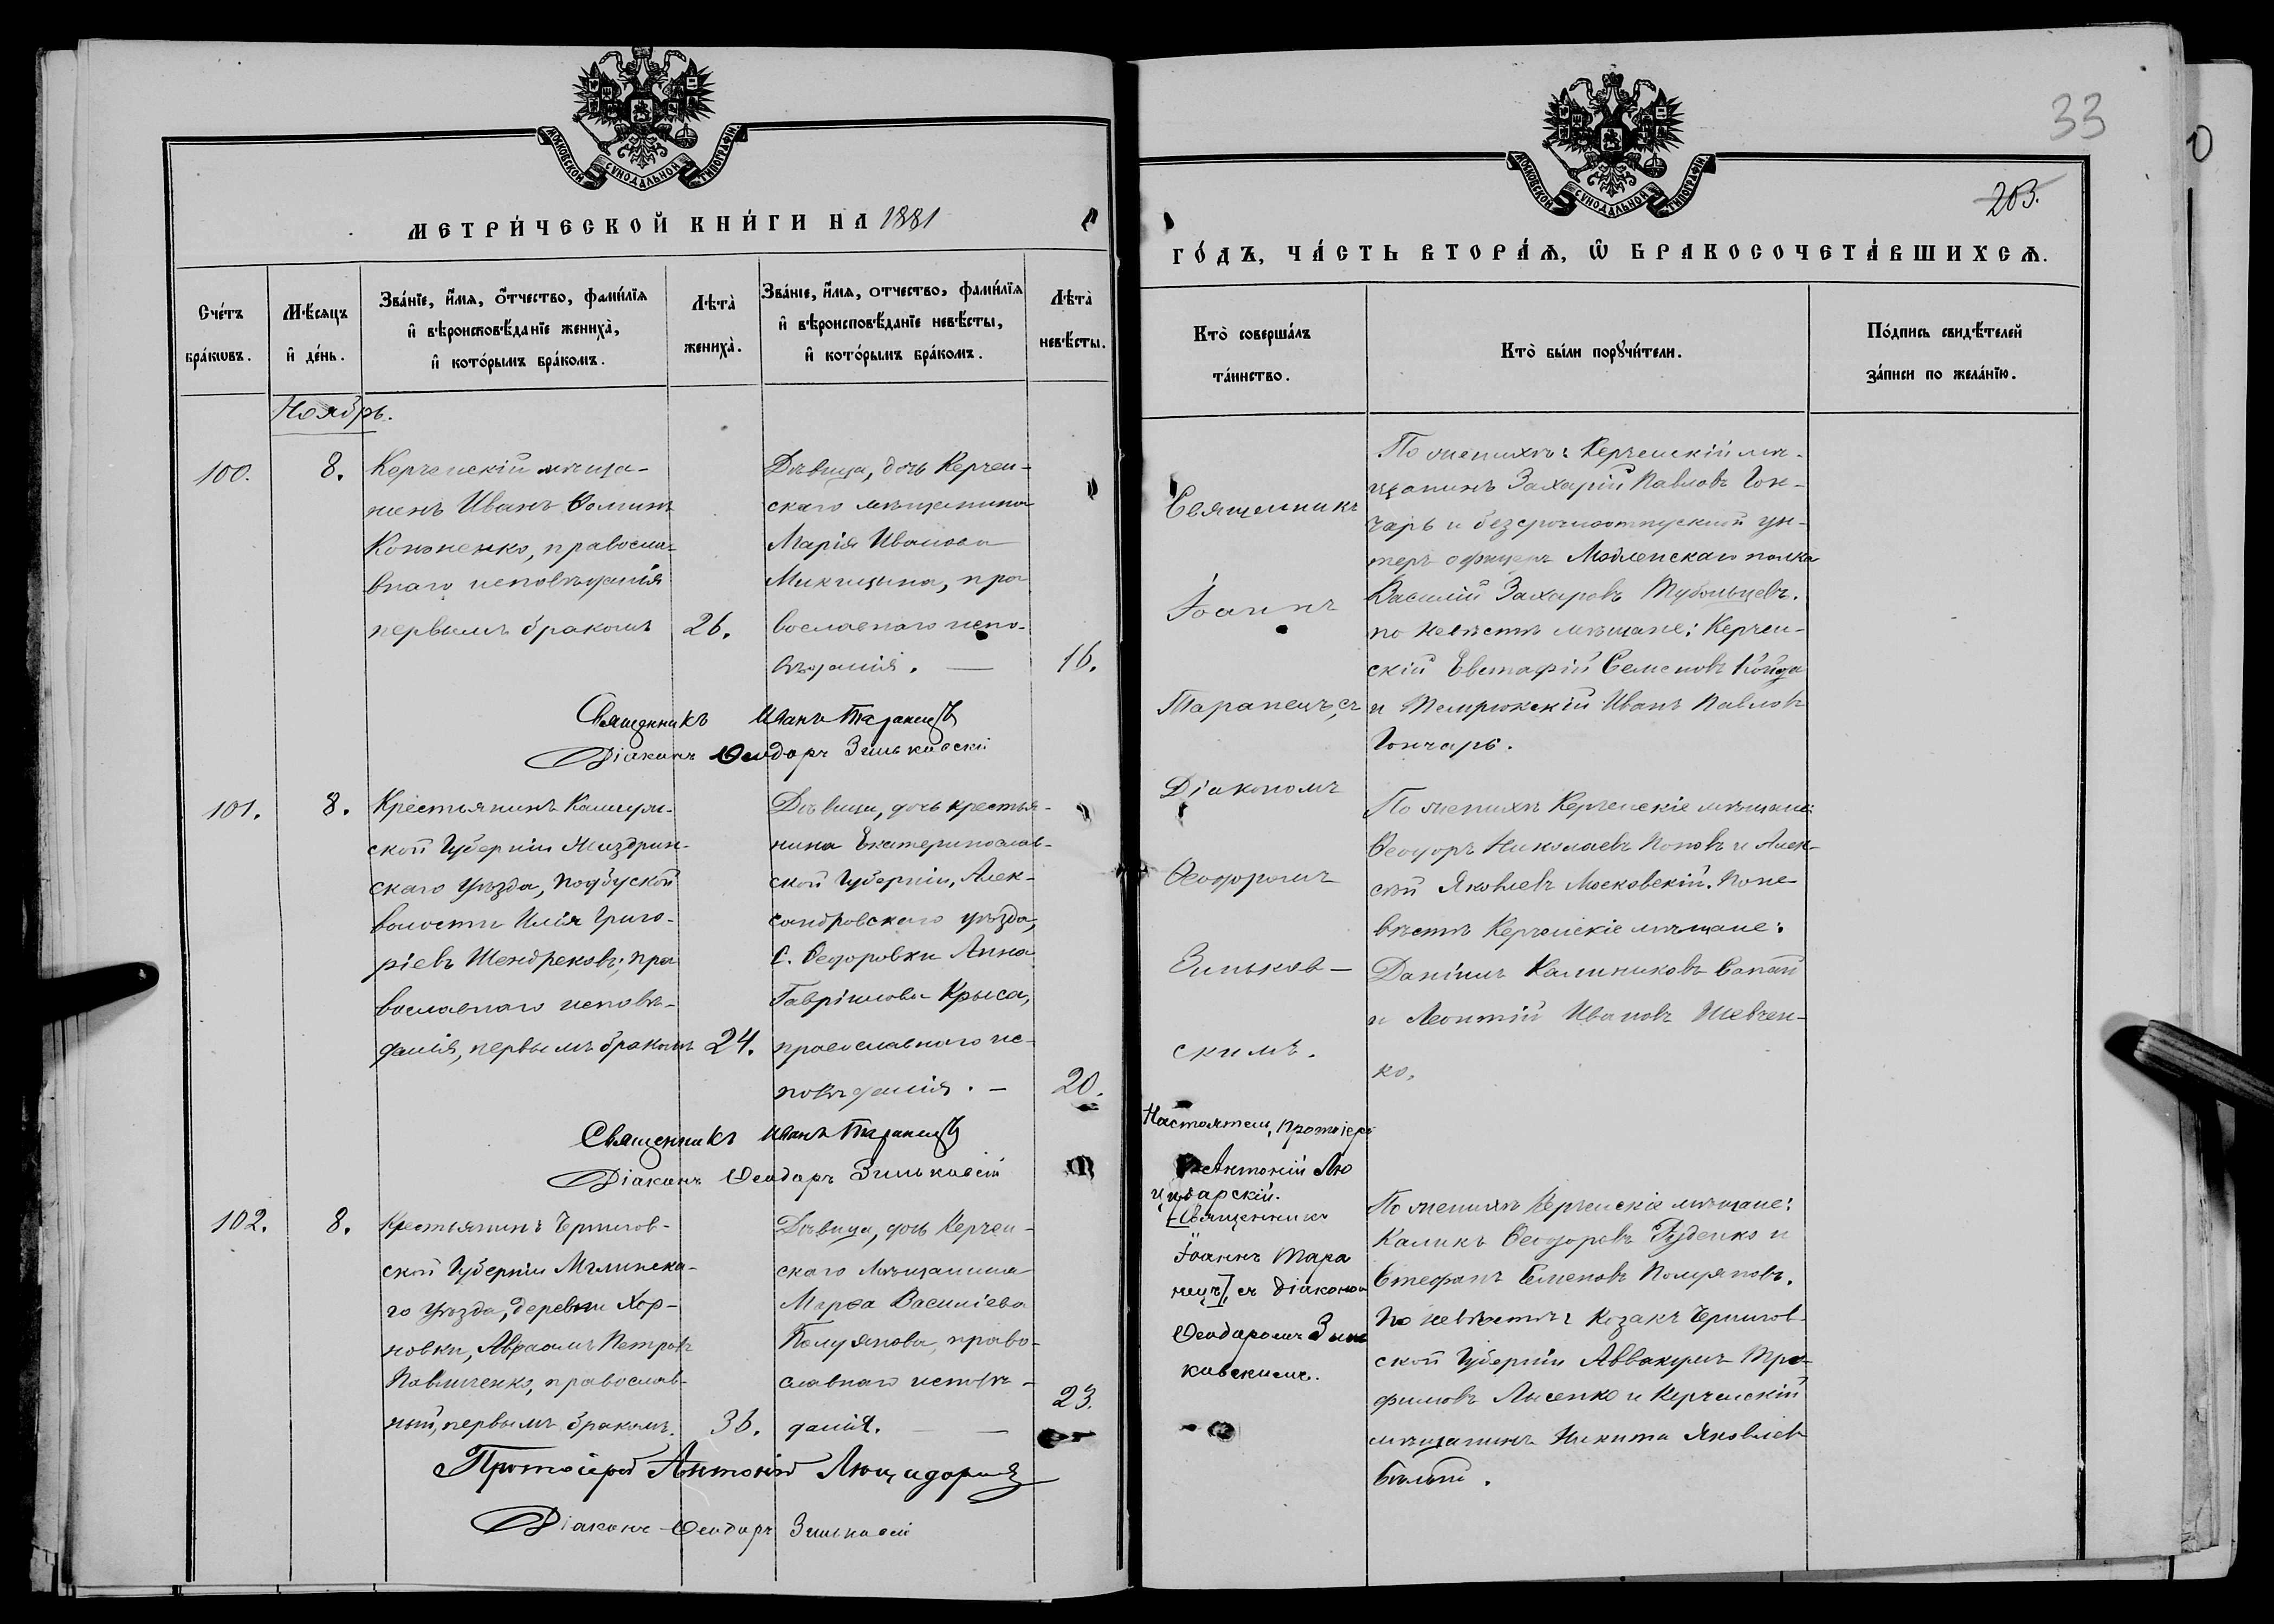 МОСКОВСКОЙ СѴНОДАЛЬНОЙ ТИПОГРАФІИ
МЕТРИ́ЧЕСКОЙ КНИ́ГИ НА 1881
Сче́тъ бра́кωвъ.
Мѣ́сяцъ и҆ де́нь.
Зва́нїе, и҆́мя, о҆́тчество, фами́лїя и҆ вѣроисповѣ́данїе жениха̀, и҆ кото́рымъ бра́комъ.
Лѣта̀ жениха̀.
Зва́нїе, и҆́мя, отчество, фами́лїя и҆ вѣроисповѣ́данїе невѣ́сты, и҆ кото́рымъ бра́комъ.
Лѣта̀ невѣ́сты.
Ноябрь.
100.
8.
Керченскій мѣща-
нинъ Иванъ Ѳоминъ
Кононенко, правосла-
внаго исповѣданія
первымъ бракомъ
26.
Дѣвица, дочь Керчен-
скаго мѣщанина
Марія Иванова
Микицына, пра
вославнаго испо-
вѣданія. —
16.
Священникъ Иванъ Таранецъ
Діаконъ Ѳеодоръ Зиньковскій
101.
8.
Крестьянинъ Калуж-
ской Губерніи Жиздрин-
скаго уѣзда, Подбуской
волости Илія Григо-
ріевъ Шендрековъ; пра
вославнаго исповѣ-
данія, первымъ бракомъ
24.
Дѣвица, дочь крестья-
нина Екатеринослав-
ской Губерніи, Алек-
сандровскаго уѣзда,
С. Ѳедоровки Анна
Гавріилова Крыса,
православнаго ис-
повѣданія. —
20.
Священникъ Иванъ Таранецъ
Діаконъ Ѳеодоръ Зиньковскій
102.
8.
Крестьянинъ Чернигов-
ской Губерніи Мглинска-
го уѣзда, деревни Хор-
новки, Авраамъ Петровъ
Павлюченко, православ-
ный, первымъ бракомъ.
36.
Дѣвица, дочь Керчен-
скаго Мѣщанина
Марѳа Василіева
Полуянова, право-
славнаго исповѣ-
данія. — —
23.
Протоіерей Антоній Люцидарскій
Діаконъ Ѳеодоръ Зиньковскій
33
МОСКОВСКОЙ СѴНОДАЛЬНОЙ ТИПОГРАФІИ
203.
ГО́ДЪ, ЧА́СТЬ ВТОРА́Ѧ, Ѡ҆ БРАКОСОЧЕТА́ВШИХСѦ.
Кто̀ соверша́лъ та́инство.
Кто̀ бы́ли порꙋчи́тели.
По́дпись свидѣ́телей за́писи по жела́нїю.
Священникъ
Іоаннъ
Таранецъ, съ
Діакономъ
Ѳеодоромъ
Зиньков-
скимъ.
По женихѣ: Керченскій мѣ-
щанинъ Захарій Павловъ Гон-
чаръ и безсрочноотпускной ун-
теръ офицеръ полка
Василій Захаровъ Тубольцевъ.
по Невѣстѣ мѣщане: Керчен-
скій Евстафій Семеновъ Койда
и Темрюкскій Иванъ Павловъ
Гончаръ.
По женихѣ Керченскіе мѣщане:
Ѳеодоръ Николаевъ Поповъ и Алек-
сѣй Яковлевъ Московскій. По не-
вѣстѣ Керченскіе мѣщане:
Даніилъ Калиниковъ
и Леонтій Ивановъ Шевчен-
ко.
Настоятель, Протоіерей
Антоній Лю
цидарскій.
[Священникъ
Іоаннъ Тара
нецъ], съ діакономъ
Ѳеодоромъ Зинь
ковскимъ.
По женихѣ Керченскіе мѣщане:
Калинъ Ѳеодоровъ Руденко и
Стефанъ Семеновъ Полуяновъ.
По невѣстѣ: Козакъ Чернигов-
ской Губерніи Аввакумъ Тро-
фимовъ Лысенко и Керченскій
мѣщанинъ Никита Яковлевъ
Бѣлый.